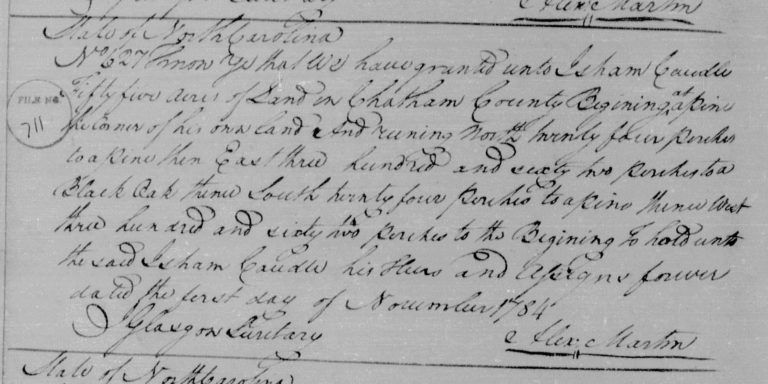 Alex: Martin
State of North Carolina
No 627 Know Ye that We have granted unto Isham Caudle
Fifty five acres of Land in Chatham County Begining at a pine
FILE NO.
711
the corner of his own land And runing North twenty four perches
to a pine then East three hundred and sixty two perches to a
Black Oak thence South twenty four perches to a pine thence West
three hundred and sixty two perches to the Begining To hold unto
the said Isham Caudle his Heirs and Assigns forever
dated the first day of November 1784
J Glasgow Secretary
Alex: Martin
State of North Carolina